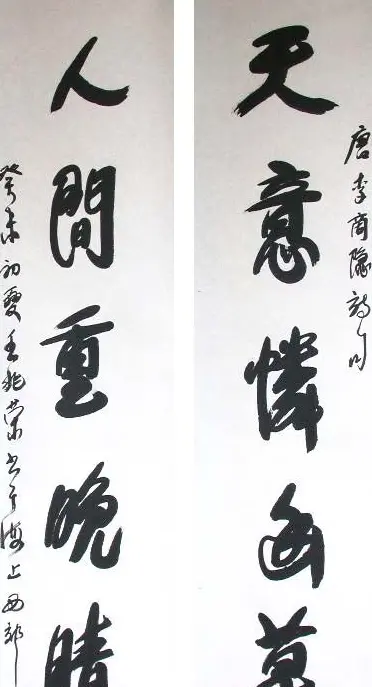 唐李商隱詩句
天意憐幽草
人間重晚晴
癸未初夏王兆荣书于海上西郊